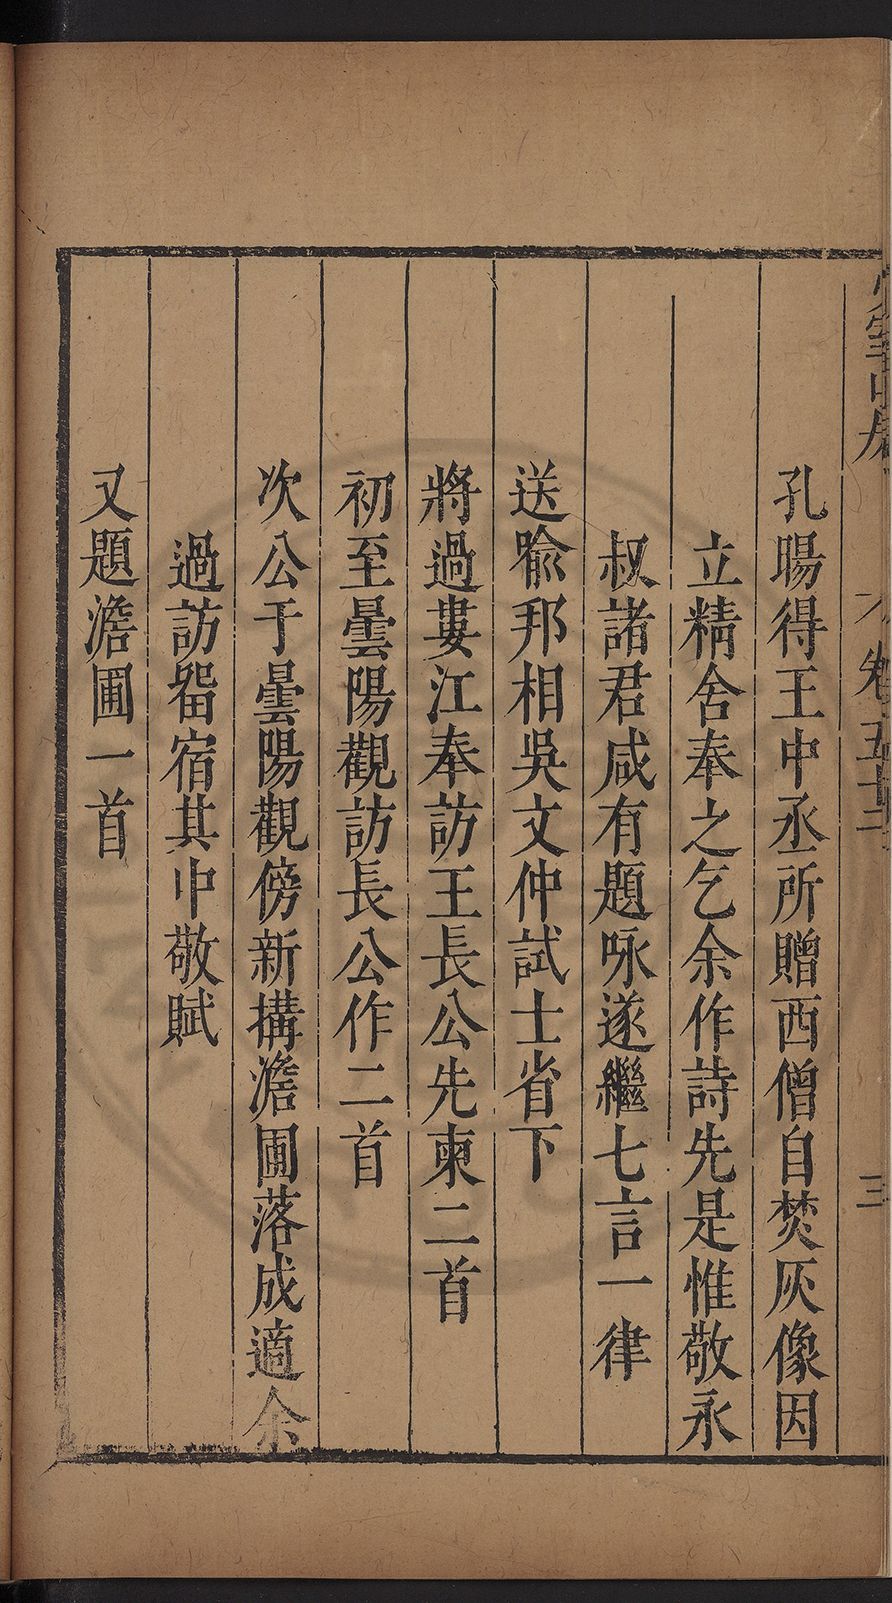 孔暘得王中丞所贈西僧自焚灰像因
立精舍奉之乞余作詩先是惟敬永
叔諸君咸有題咏遂繼七言一律
送喩邦相吳文仲試士省下
將過婁江奉訪王長公先柬二首
初至曇陽觀訪長公作二首
次公于曇陽觀傍新搆澹圃落成適余
過訪畱宿其中敬賦
又題澹圃一首
卷五十二
三